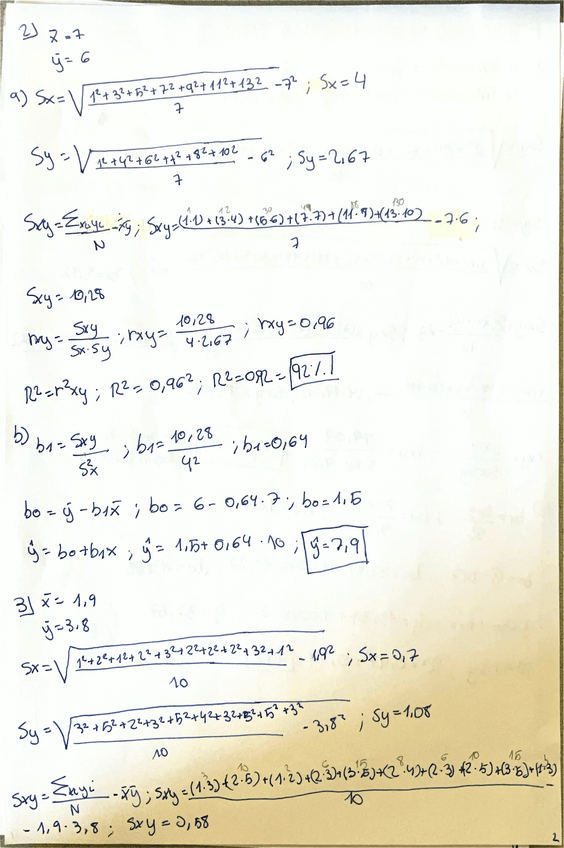 2) x̄ = 7
ȳ = 6
a) Sx = √(1²+3²+5²+7²+9²+11²+13² / 7 − 7²) ; Sx = 4
Sy = √(1²+4²+6²+7²+8²+10² / 7 − 6²) ; Sy = 2,67
Sxy = Σxiyi / N − x̄ȳ ; Sxy = (1·1)+(3·4)+(5·6)+(7·7)+(11·8)+(13·10) / 7 − 7·6 ;
Sxy = 10,28
rxy = Sxy / Sx·Sy ; rxy = 10,28 / 4·2,67 ; rxy = 0,96
R² = r²xy ; R² = 0,96² ; R² = 0,92 = 92%
b) b1 = Sxy / S²x ; b1 = 10,28 / 4² ; b1 = 0,64
b0 = ȳ − b1x̄ ; b0 = 6 − 0,64·7 ; b0 = 1,5
ŷ = b0 + b1x ; ŷ = 1,5 + 0,64·10 ; ŷ = 7,9
3) x̄ = 1,9
ȳ = 3,8
Sx = √(1²+2²+1²+2²+3²+2²+2²+2²+3²+1² / 10 − 1,9²) ; Sx = 0,7
Sy = √(3²+5²+2²+3²+5²+4²+3²+5²+5²+3² / 10 − 3,8²) ; Sy = 1,08
Sxy = Σxiyi / N − x̄ȳ ; Sxy = (1·3)+(2·5)+(1·2)+(2·3)+(3·5)+(2·4)+(2·3)+(2·5)+(3·5)+(1·3) / 10 −
− 1,9·3,8 ; Sxy = 0,58
2